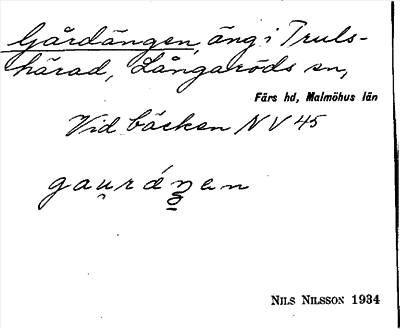 Gårdängen, äng i Truls-
härad, Långaröds sn,
Färs hd, Malmöhus län
Vid bäcken NV 45
gau̯ráŋ̥en
NILS NILSSON 1934